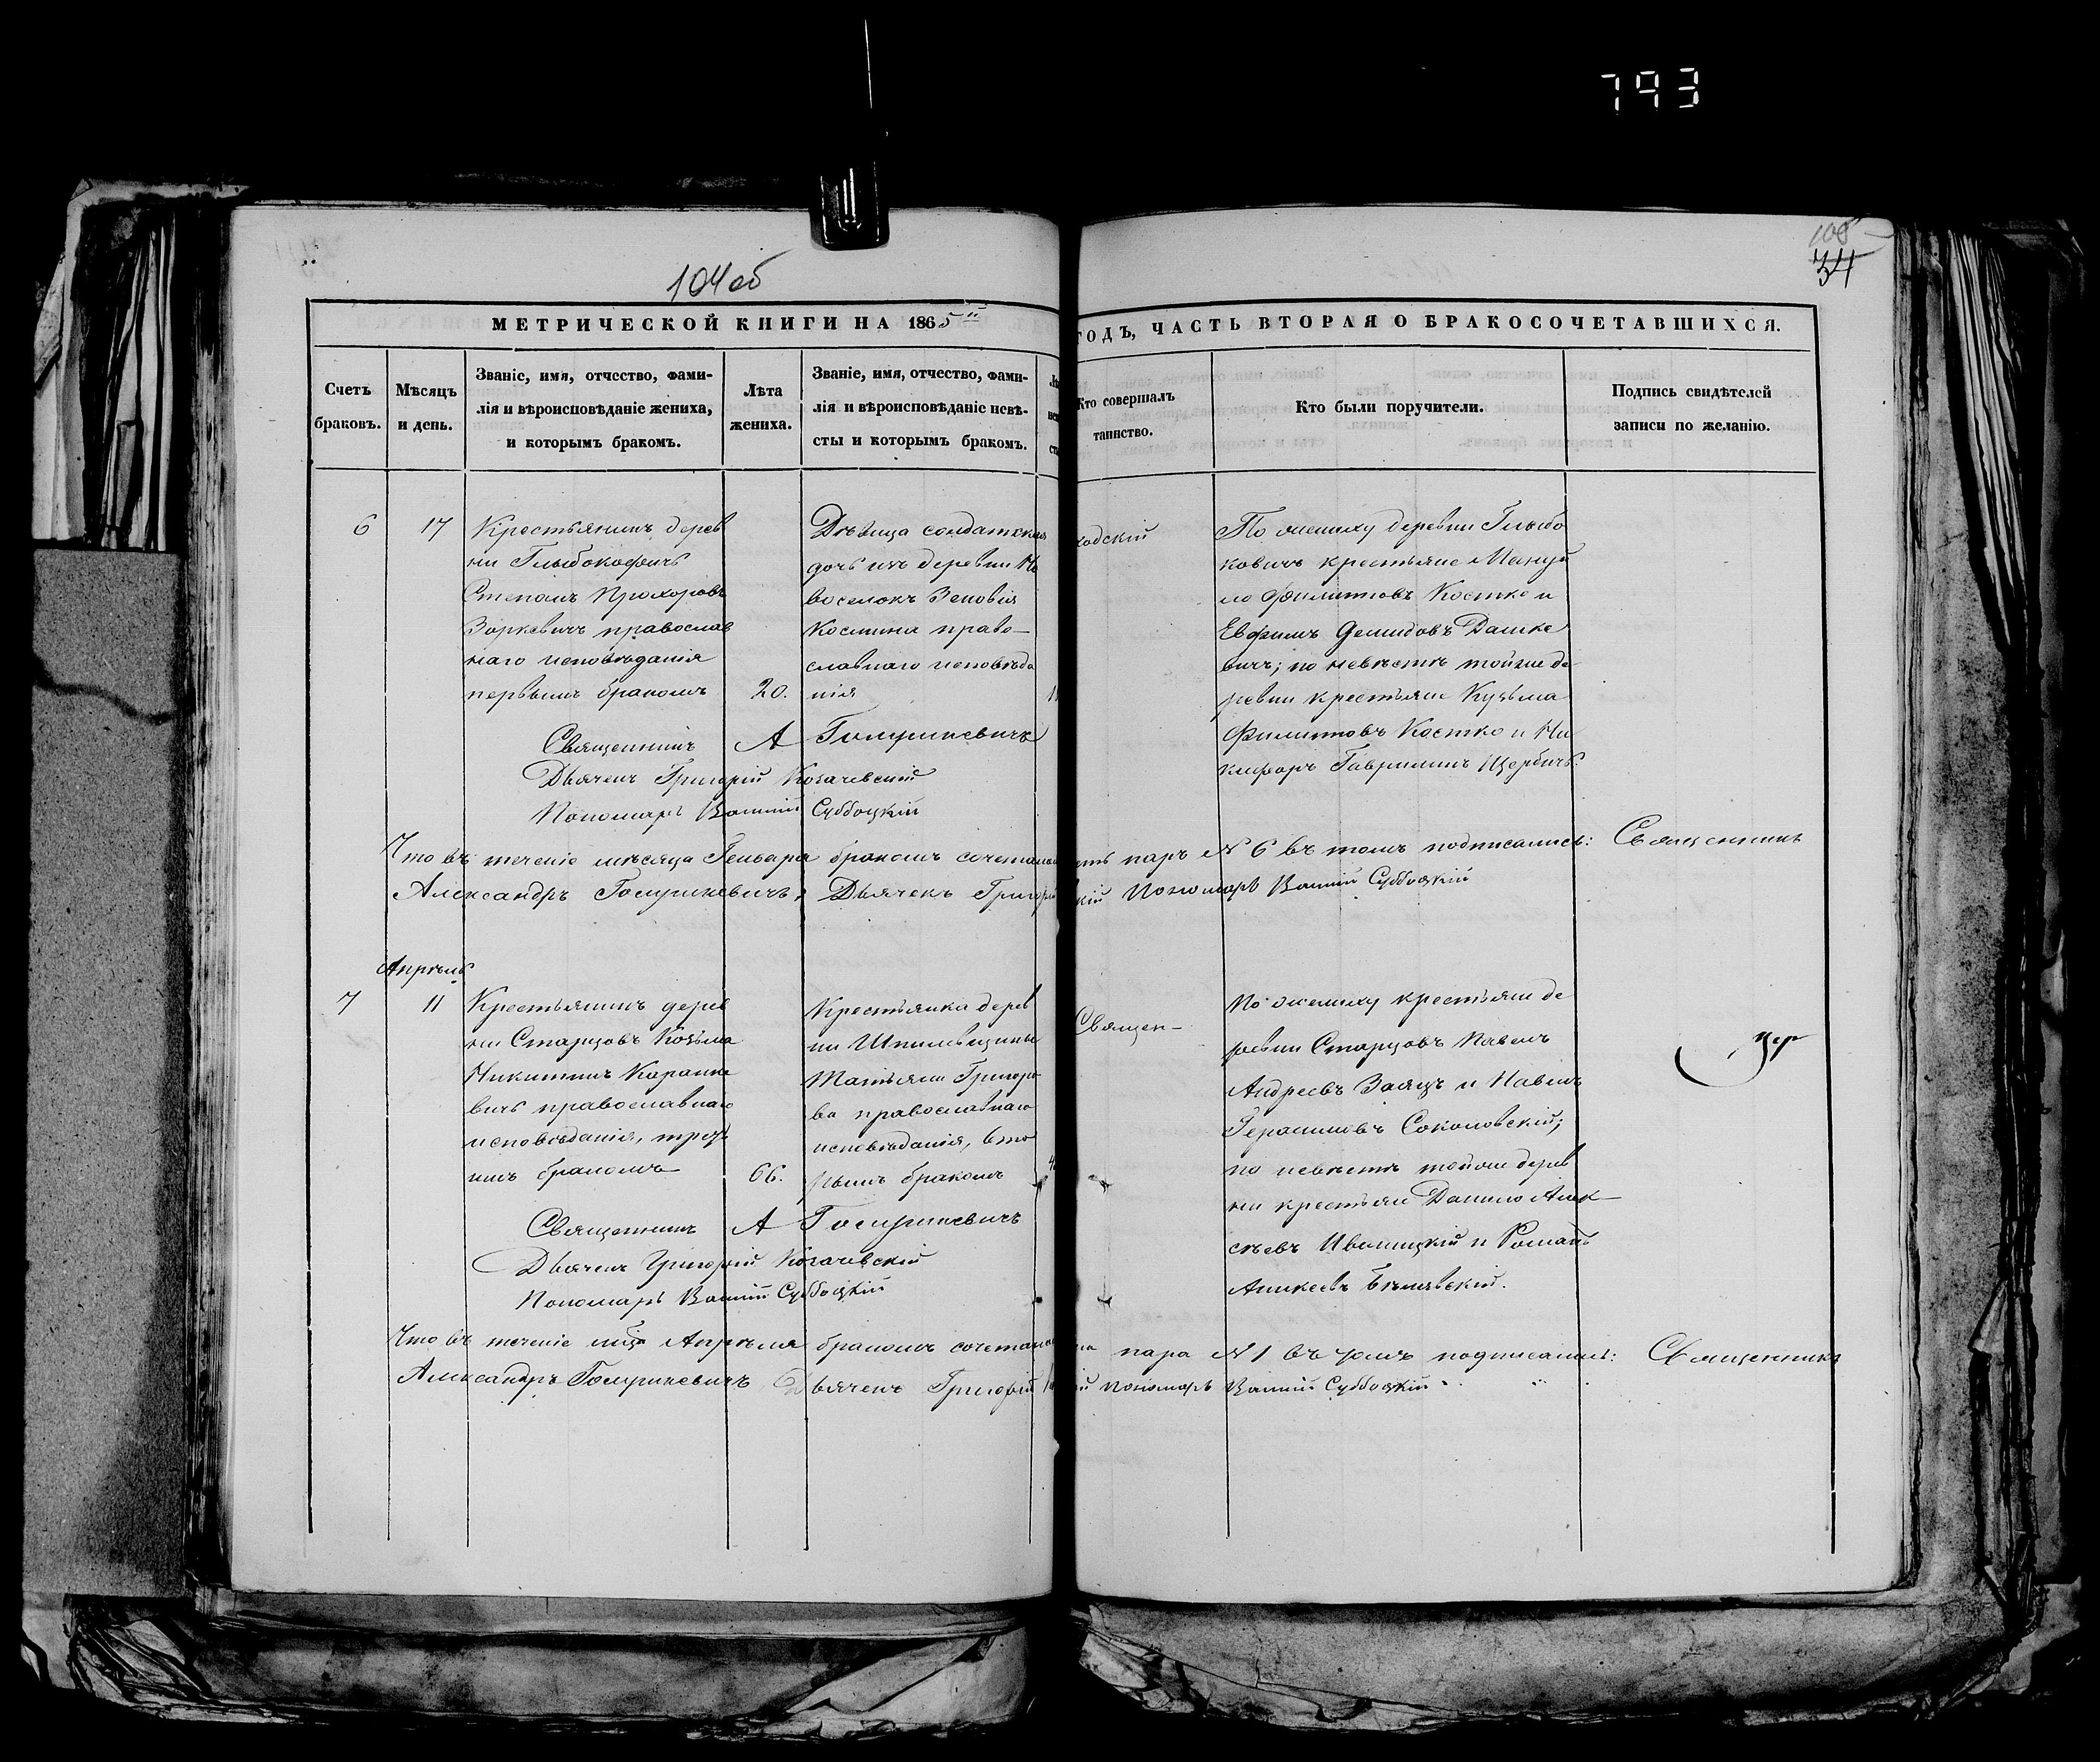 793
104 об
105
34
МЕТРИЧЕСКОЙ КНИГИ НА 1865й
ГОДЪ, ЧАСТЬ ВТОРАЯ О БРАКОСОЧЕТАВШИХСЯ.
Счетъ
браковъ.
Мѣсяцъ
и день.
Званіе, имя, отчество, фами-
лія и вѣроисповѣданіе жениха,
и которымъ бракомъ.
Лѣта
жениха.
Званіе, имя, отчество, фами-
лія и вѣроисповѣданіе невѣ-
сты и которымъ бракомъ.
Кто совершалъ
таинство.
Кто были поручители.
Подпись свидѣтелей
записи по желанію.
6
17
Крестьянинъ дерев
ни Глыбоковичъ
Степанъ Прохоровъ
Зоркевичъ православ
наго исповѣданія
первымъ бракомъ
20.
Дѣвица солдатская
дочь изъ деревни Но
воселокъ Зеновія
Космина право-
славнаго исповѣда
нія
ходскій
По жениху деревни Глыбо
ковичъ крестьяне Мануй
ло Филиповъ Костко и
Евфимъ Демидовъ Дашке
вичъ; по невѣстѣ тойже де
ревни крестьяне Кузьма
Филиповъ Костко и Ни
кифоръ Гавриловъ Щербичъ.
Священникъ А Гомуликевичъ
Дьячекъ Григорій Козачевскій
Пономарь Суббоцкій
Что въ теченіе мѣсяца Генваря бракомъ
паръ N 6 въ томъ подписались: Священникъ
Александръ Дьячекъ
Пономарь Суббоцкій
Апрѣль
7
11
Крестьянинъ дерев
ни Старцовъ Козьма
Никитинъ
вичъ православнаго
исповѣданія, треть
имъ бракомъ
66.
Крестьянка дерев
ни
Татьяна Григорье
ва православнаго
исповѣданія, вто
рымъ бракомъ
Священ-
По жениху крестьяне де
ревни Старцовъ Павелъ
Андреевъ Заяцъ и Павелъ
Герасимовъ Соколовскій;
по невѣстѣ тойже дерев
ни крестьяне Данило Алек
сѣевъ Ивашицкій и Романъ
Бѣлявскій.
Священникъ А
Дьячекъ Григорій Козачевскій
Пономарь Суббоцкій
Что въ теченіе Апрѣля бракомъ
пара N 1 въ томъ подписались: Священникъ
Александръ Дьячекъ Григорій
Пономарь Суббоцкій